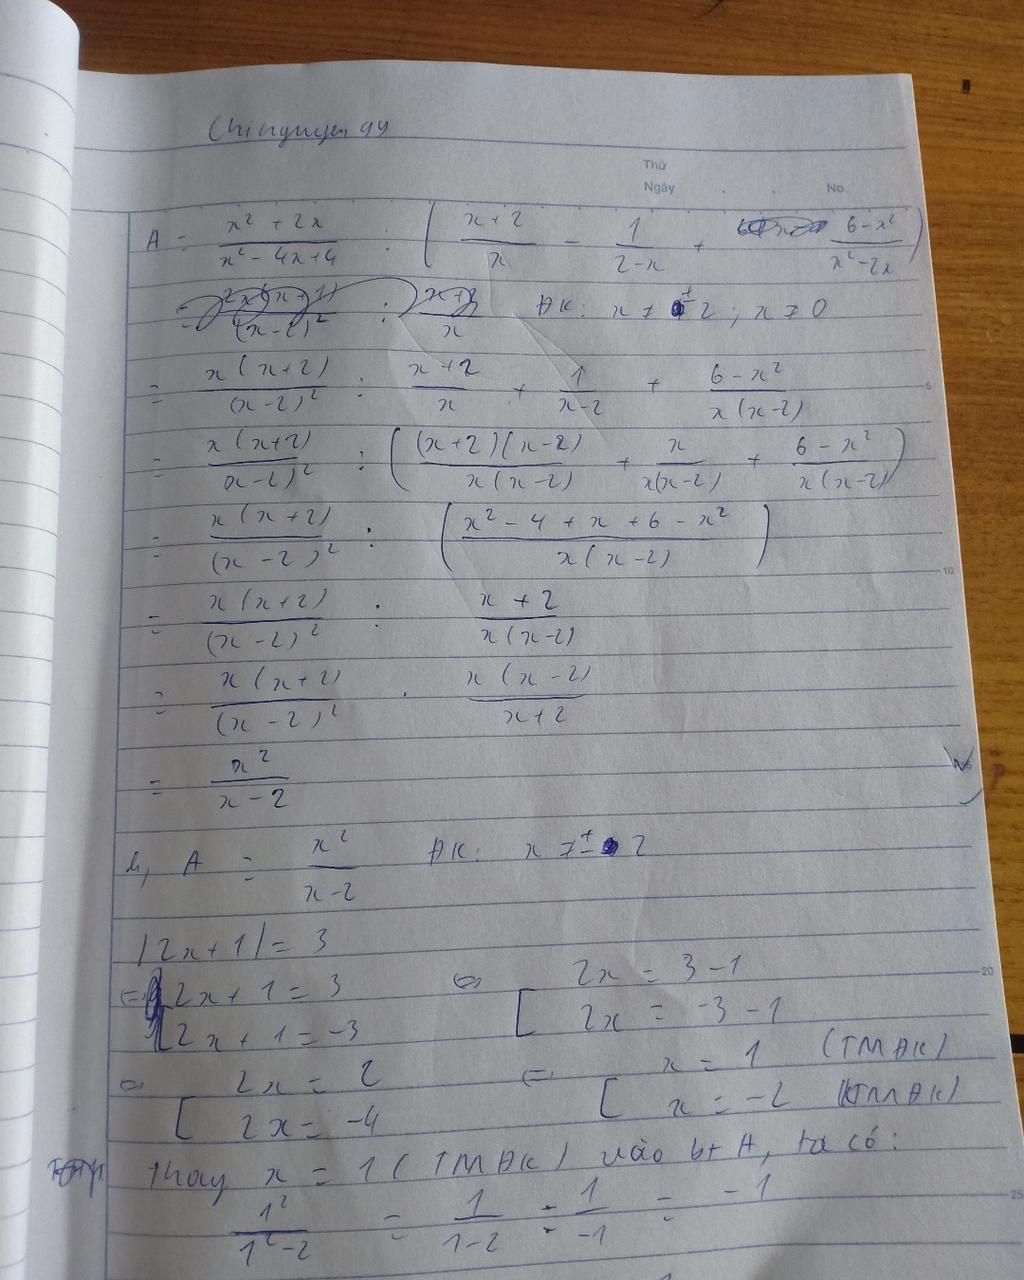 Chinguyen 99
Thứ
Ngày . . No.
A = (x² + 2x)/(x² - 4x + 4) : ( (x + 2)/x - 1/(2 - x) + (6 - x²)/(x² - 2x) )
= : x ĐK: x ≠ ± 2 ; x ≠ 0
= x(x+2)/(x-2)² : (x+2)/x + 1/(x-2) + (6 - x²)/(x(x-2))
5
= x(x+2)/(x-2)² : ( (x+2)(x-2)/(x(x-2)) + x/(x(x-2)) + (6 - x²)/(x(x-2)) )
= x(x+2)/(x-2)² : ( (x² - 4 + x + 6 - x²)/(x(x-2)) )
10
= x(x+2)/(x-2)² : (x + 2)/(x(x-2))
= x(x+2)/(x-2)² . x(x-2)/(x+2)
= x²/(x-2)
b, A = x²/(x-2) ĐK: x ≠ ± 2
|2x+1| = 3
⇔ [ 2x + 1 = 3 ⇔ [ 2x = 3 - 1
20
[ 2x + 1 = -3 [ 2x = -3 - 1
⇔ [ 2x = 2 ⇔ [ x = 1 (TMĐK)
[ 2x = -4 [ x = -2 (KTMĐK)
Thay x = 1 (TMĐK) vào bt A, ta có:
1²/(1² - 2) = 1/(1-2) = 1/-1 = -1
25